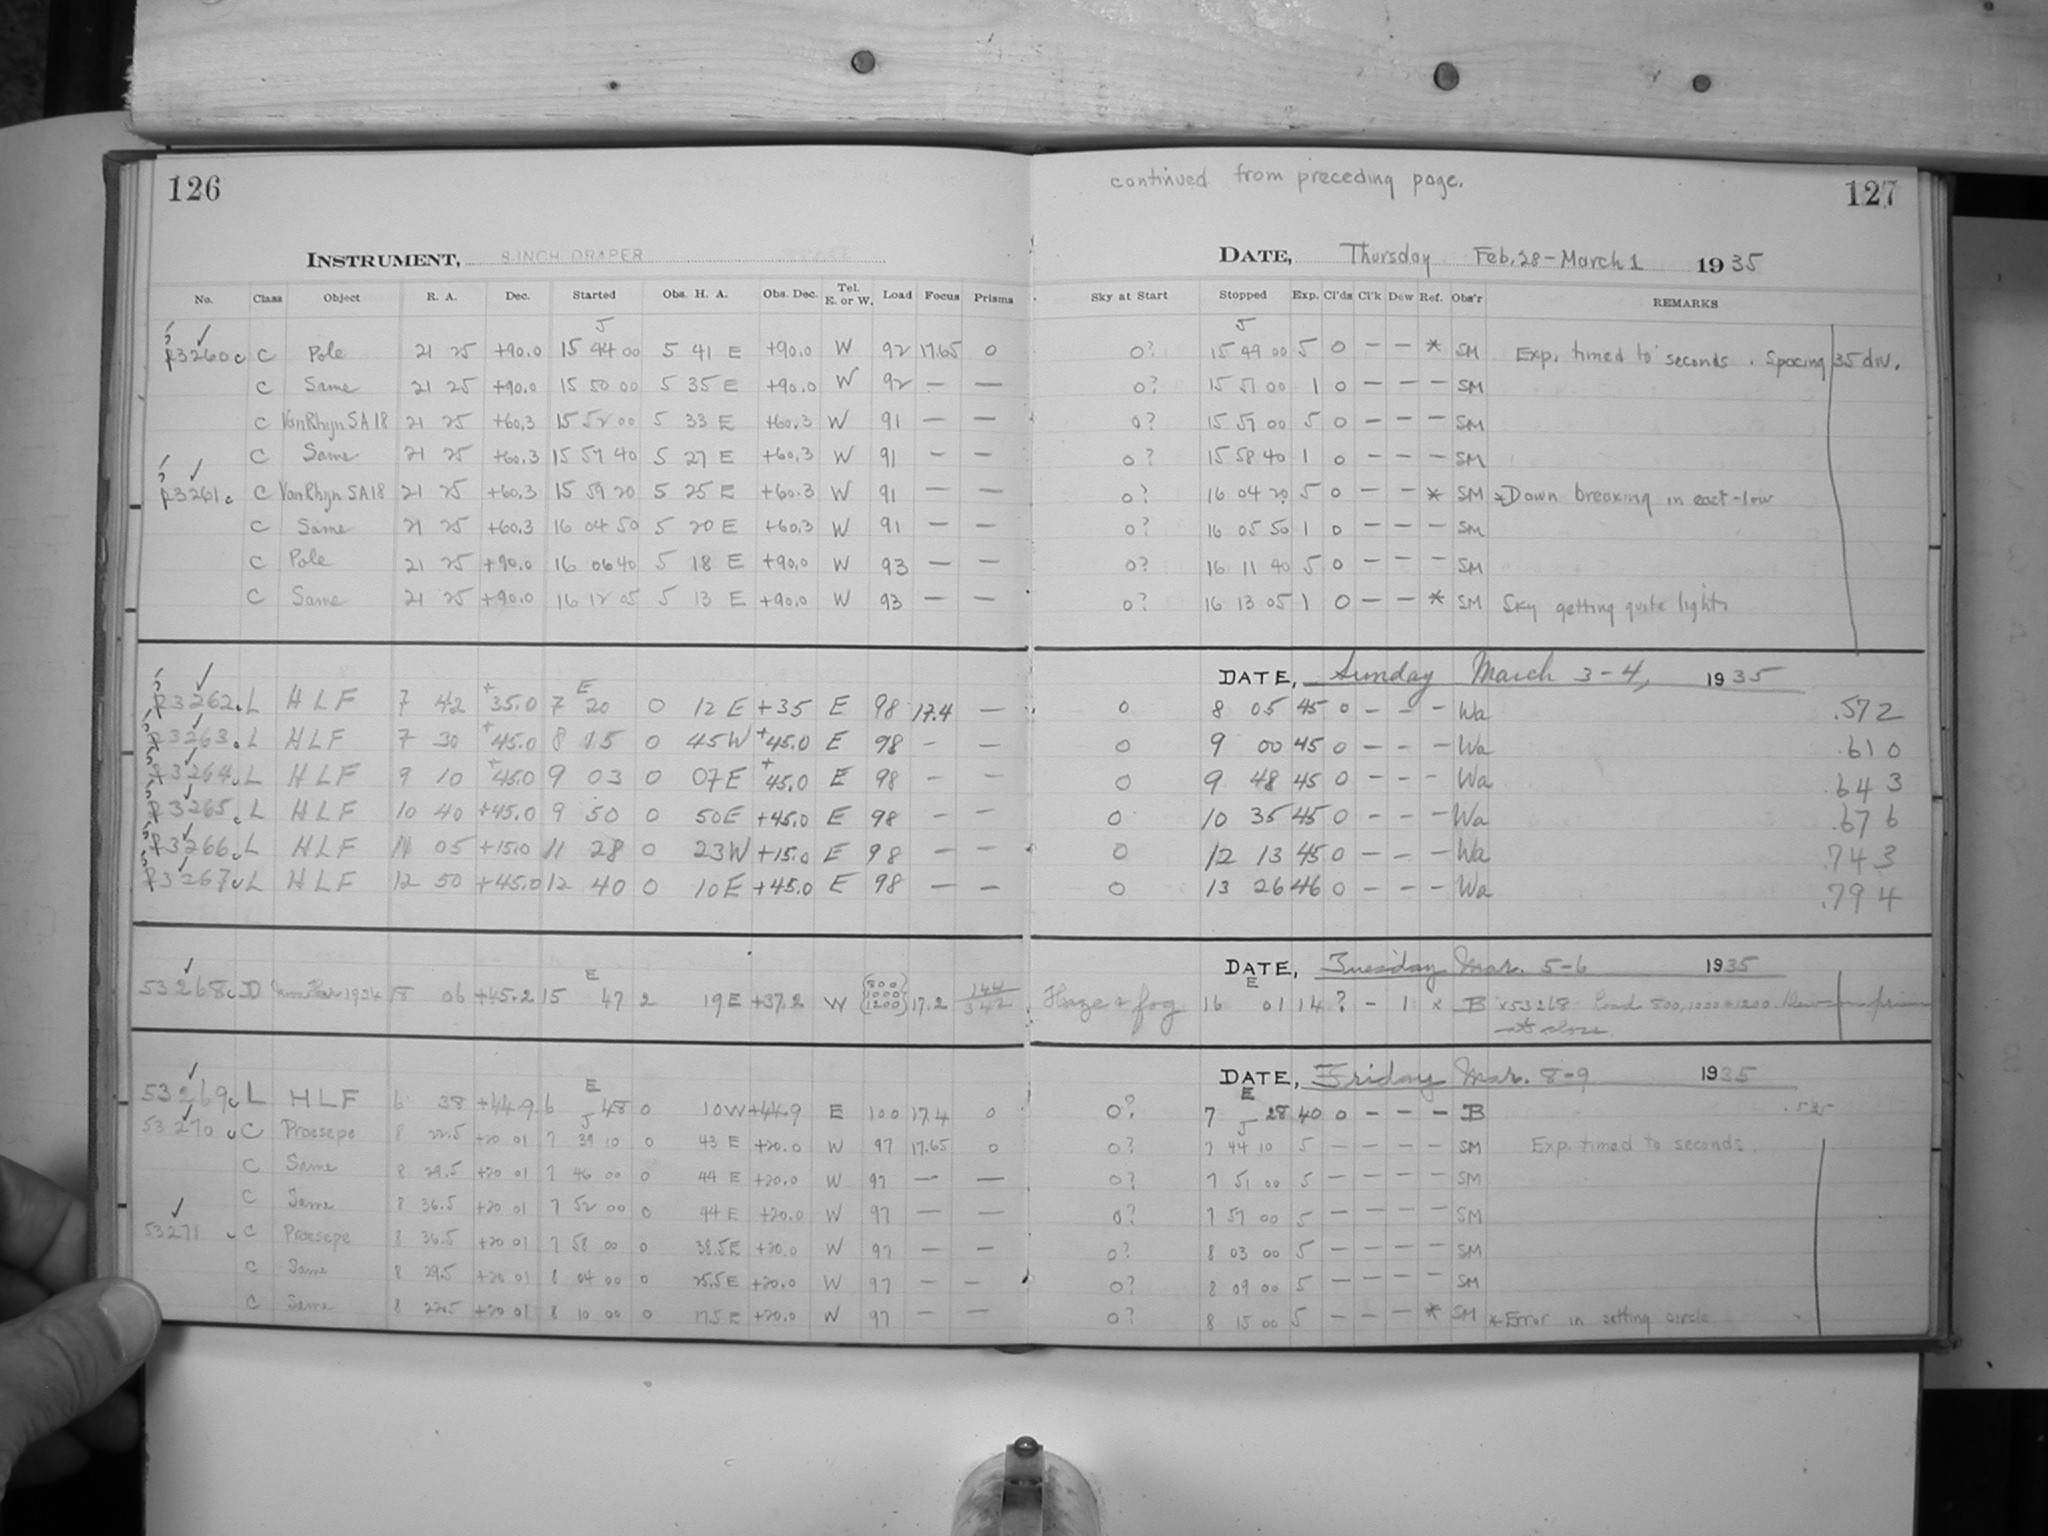 126
continued from preceding page.
127
INSTRUMENT, 8-INCH DRAPER
DATE, Thursday Feb. 28 - March 1 1935
No. Class Object R. A. Dec. Started Obs. H. A. Obs. Dec. Tel. E. or W. Load Focus Prisms Sky at Start Stopped Exp. Cl'ds Cl'k Dew Ref. Obs'r REMARKS
J J
53260 c C Pole 21 25 +90.0 15 44 00 5 41 E +90.0 W 92 17.65 0 0? 15 49 00 5 0 — — * SM Exp. timed to seconds. Spacing 35 div.
C Same 21 25 +90.0 15 50 00 5 35 E +90.0 W 92 — — 0? 15 51 00 1 0 — — — SM
C Van Rhijn SA 18 21 25 +60.3 15 52 00 5 33 E +60.3 W 91 — — 0? 15 57 00 5 0 — — — SM
C Same 21 25 +60.3 15 57 40 5 27 E +60.3 W 91 — — 0? 15 58 40 1 0 — — — SM
53261 c C Van Rhijn SA 18 21 25 +60.3 15 59 20 5 25 E +60.3 W 91 — — 0? 16 04 20 5 0 — — * SM *Dawn breaking in east-low
C Same 21 25 +60.3 16 04 50 5 20 E +60.3 W 91 — — 0? 16 05 50 1 0 — — — SM
C Pole 21 25 +90.0 16 06 40 5 18 E +90.0 W 93 — — 0? 16 11 40 5 0 — — — SM
C Same 21 25 +90.0 16 12 05 5 13 E +90.0 W 93 — — 0? 16 13 05 1 0 — — * SM Sky getting quite light
DATE, Sunday March 3-4, 1935
E
53262 c L H L F 7 42 +35.0 7 20 0 12 E +35 E 98 17.4 — 0 8 05 45 0 - - - Wa .572
53263 c L H L F 7 30 +45.0 8 15 0 45 W +45.0 E 98 - — 0 9 00 45 0 - - - Wa .610
53264 c L H L F 9 10 +45.0 9 03 0 07 E +45.0 E 98 - — 0 9 48 45 0 - - - Wa .643
53265 c L H L F 10 40 +45.0 9 50 0 50 E +45.0 E 98 - — 0 10 35 45 0 - - - Wa .676
53266 c L H L F 11 05 +15.0 11 28 0 23 W +15.0 E 98 - — 0 12 13 45 0 - - - Wa .743
53267 c L H L F 12 50 +45.0 12 40 0 10 E +45.0 E 98 — — 0 13 26 46 0 - - - Wa .794
DATE, Tuesday Mar. 5-6 1935
E E
53268 c D 1934 18 06 +45.2 15 47 2 19 E +37.2 W {800 1000 1200} 17.2 Haze & fog 16 01 14 ? - 1 x B x53268 Load 800, 1000 + 1200. Dew on prism
at close.
DATE, Friday Mar. 8-9 1935
E E
53269 c L H L F 6 38 +44.9 6 48 0 10 W +44.9 E 100 17.4 0 0? 7 28 40 0 - - - B .535
J J
53270 c C Praesepe 8 22.5 +20 01 7 39 10 0 43 E +20.0 W 97 17.65 0 0? 7 44 10 5 — — — — SM Exp. timed to seconds.
C Same 8 29.5 +20 01 7 46 00 0 44 E +20.0 W 97 — — 0? 7 51 00 5 — — — — SM
C Same 8 36.5 +20 01 7 52 00 0 44 E +20.0 W 97 — — 0? 7 57 00 5 — — — — SM
53271 c C Praesepe 8 36.5 +20 01 7 58 00 0 38.5 E +20.0 W 97 — — 0? 8 03 00 5 — — — — SM
C Same 8 29.5 +20 01 8 04 00 0 25.5 E +20.0 W 97 — — 0? 8 09 00 5 — — — — SM
C Same 8 22.5 +20 01 8 10 00 0 12.5 E +20.0 W 97 — — 0? 8 15 00 5 — — — * SM *Error in setting circle